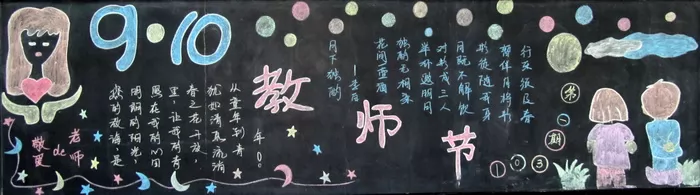 9·10
敬爱de老师
您的教诲是
明朗的阳光,
在我的心田
里,让我的青
春之花开放,
犹如清泉流淌
从童年到青
年。
教师节
月下独酌
—李白
花间一壶酒
独酌无相亲
举杯邀明月
对影成三人
月既不解饮
影徒随我身
暂伴月将影
行乐须及春
第一期
①⓪③